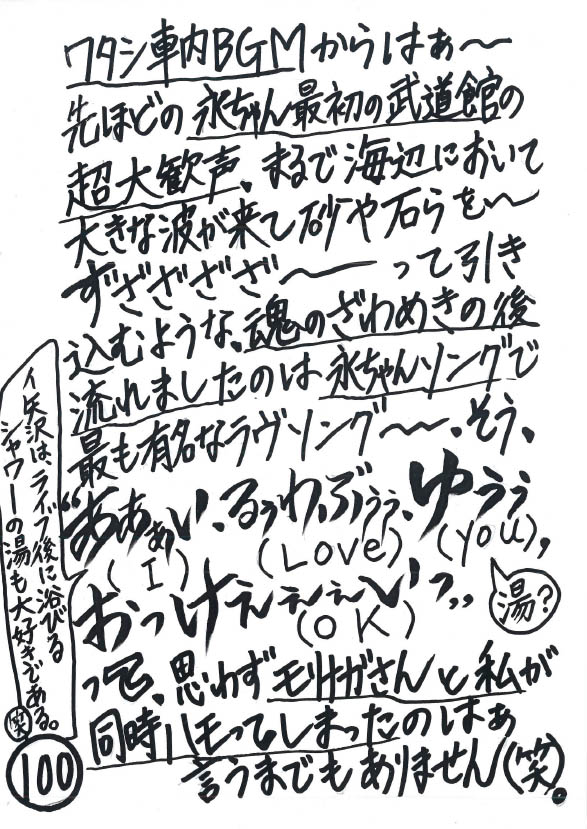 ワタシ車内BGMからはぁ〜
先ほどの永ちゃん最初の武道館の
超大歓声、まるで海辺において
大きな波が来て砂や石らを〜
ずざざざざ〜〜って引き
込むような、魂のざわめきの後
流れましたのは永ちゃんソングで
最も有名なラヴソング〜〜、そう、
“あぁぁぃ、るぅわ、ぶぅぅ、ゆぅぅ
(I) (Love) (you),
おっけぇぇぇぃっ”
(OK)
湯?
って、思わずモリナガさんと私が
同時ハモってしまったのはぁ
言うまでもありません(笑)。
イ矢沢は、ライブ後に浴びる
シャワーの湯も大好きである。
(笑)
100